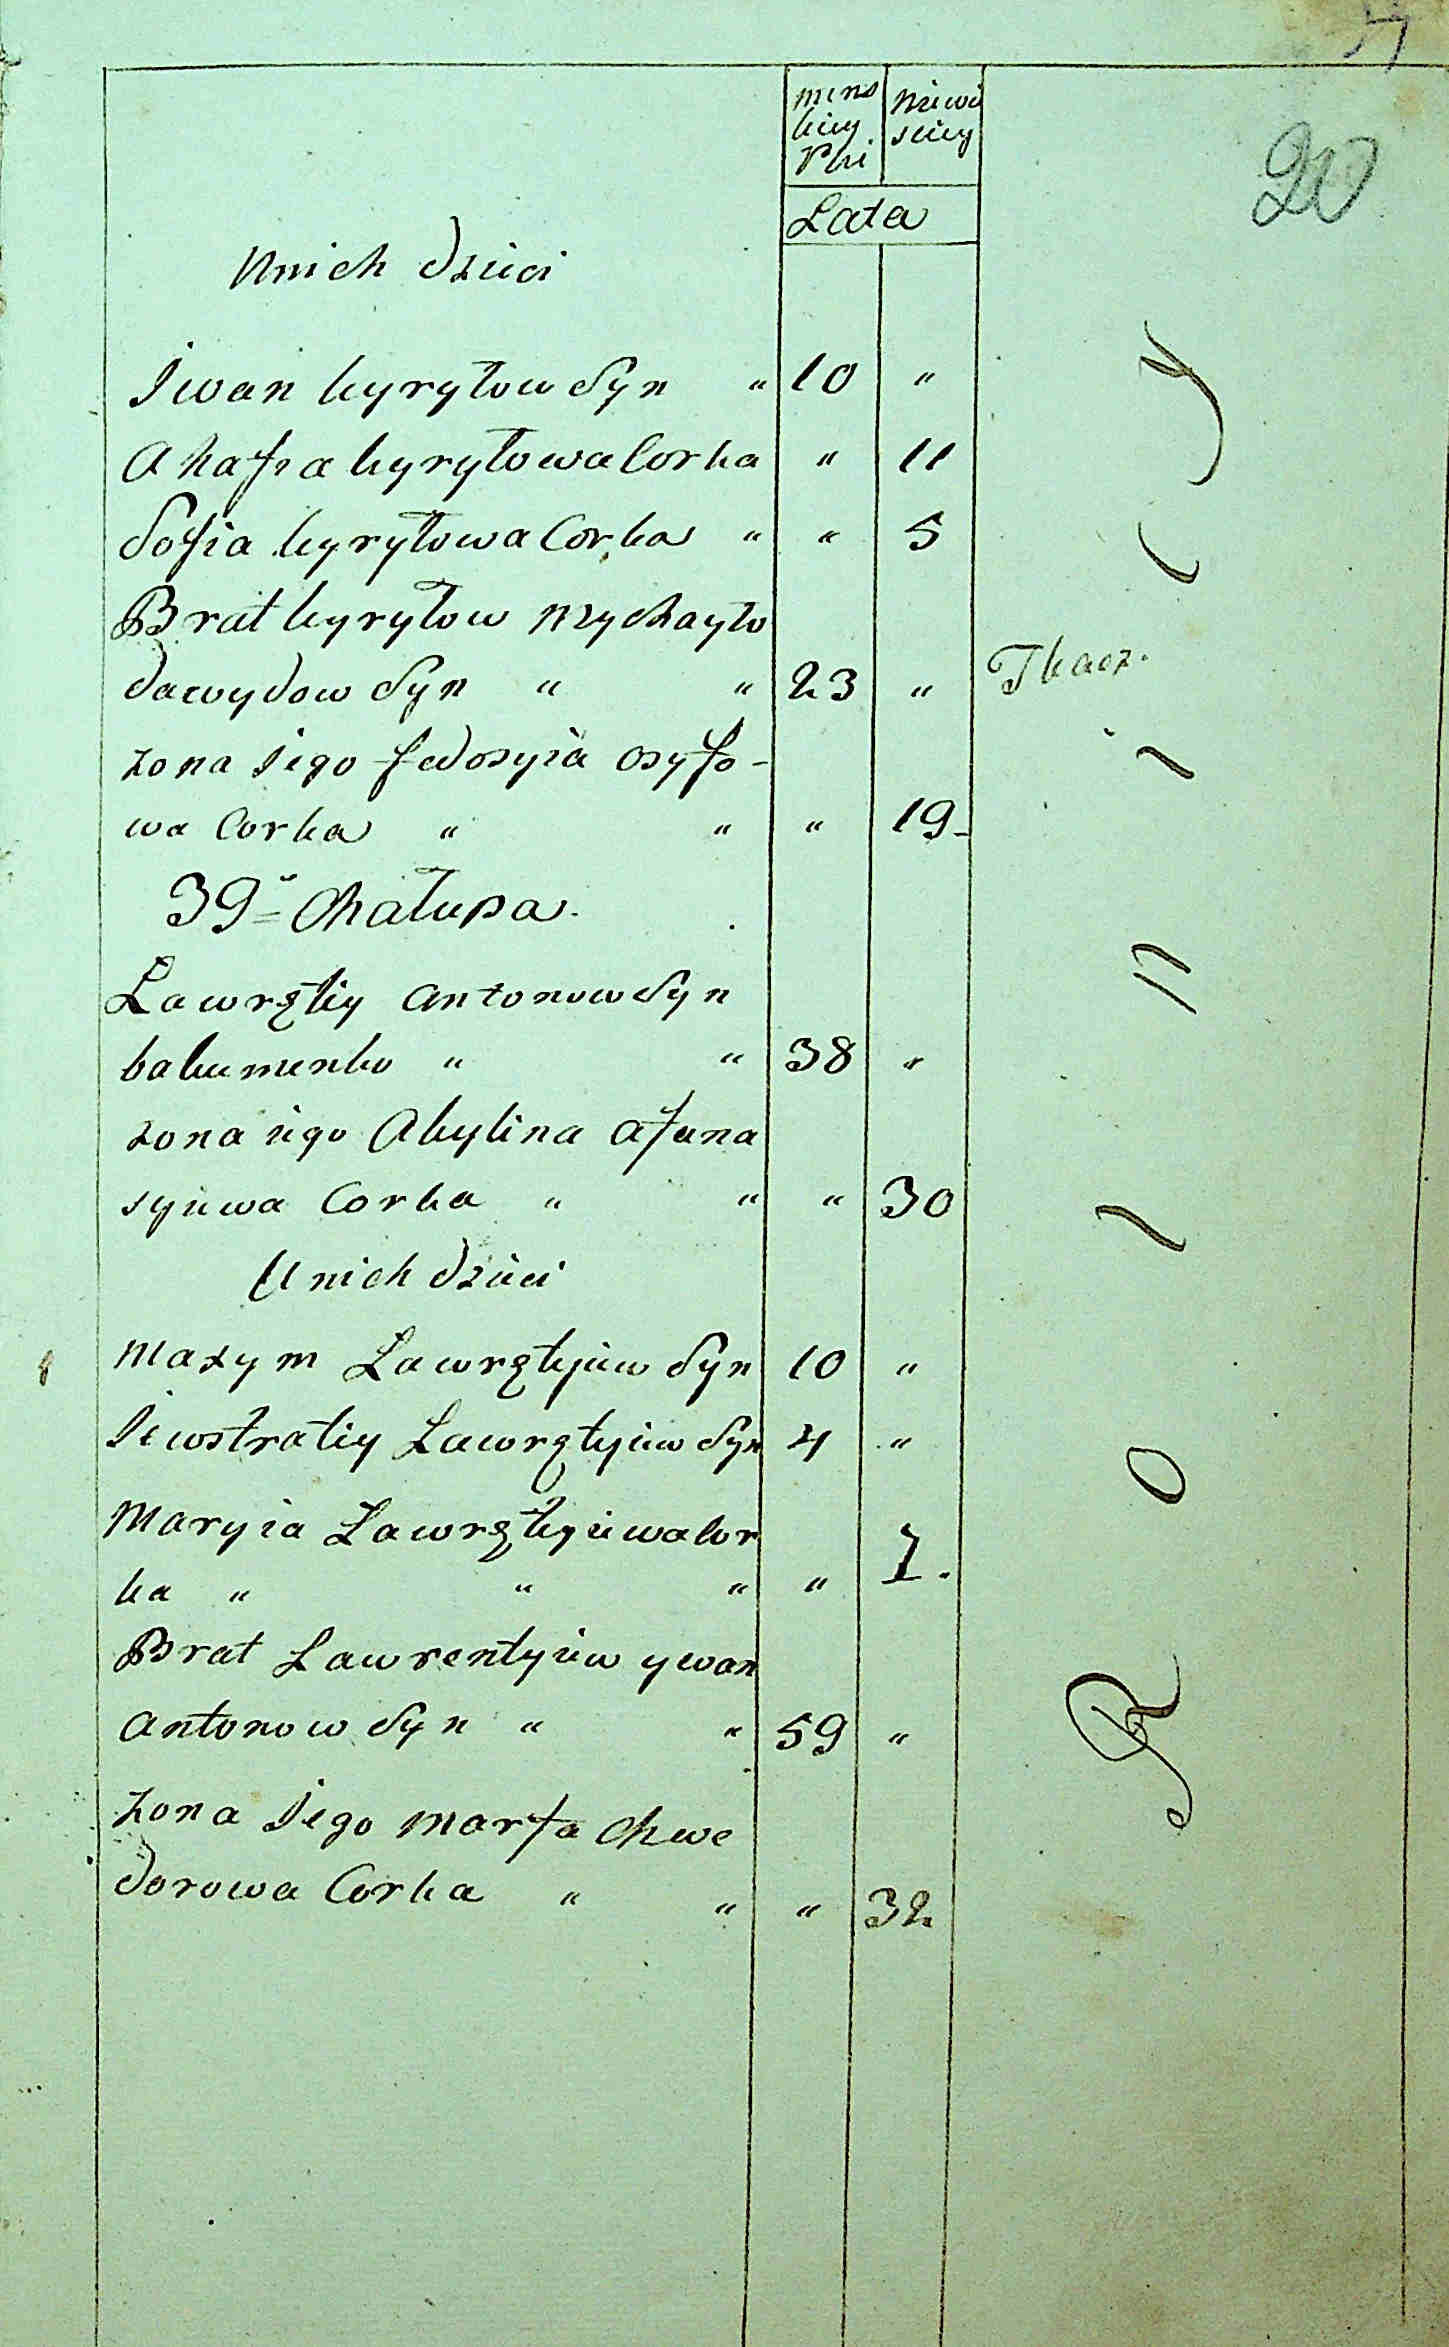 57
20
mens niewi
kiey sciey
Płci
Lata
Unich dzieci
Iwan kyryłow Syn " 10 "
Ahafia kyryłowa Corka " 11
Sofia kyryłowa Corka " " 5
Brat kyryłow Mychayło
dawydow Syn " " 23 " Tkacz.
zona Jego fedosyia osyfo-
wa Corka " " " 19-
39a Chałupa.
Ławrętiy antonow Syn
bakumenko " " 38 "
zona iego Akylina afana
syiewa Corka " " " 30
Unich dzieci
Maxym Ławrętyiew Syn 10 "
Jewstratiy Ławrętyiew Syn 4 "
Maryia Ławrętyiewa Cor
ka " " " " 1.
Brat Ławrentyiew ywan
antonow Syn " " 59 "
zona Jego marfa Chwe
dorowa Corka " " " 32
Rolnicy